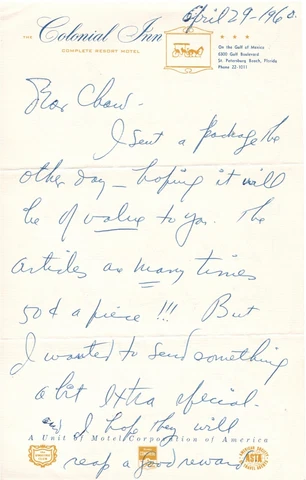 April 29-1960.
THE Colonial Inn
COMPLETE RESORT MOTEL
On the Gulf of Mexico
6300 Gulf Boulevard
St. Petersburg Beach, Florida
Phone 22-1011
Dear Chow -
I sent a package the
other day - hoping it will
be of value to you. The
articles as many times
50¢ a piece !!! But
I wanted to send something
a bit extra special.
and I hope they will
A Unit of Motel Corporation of America
reap a good reward
ASTA